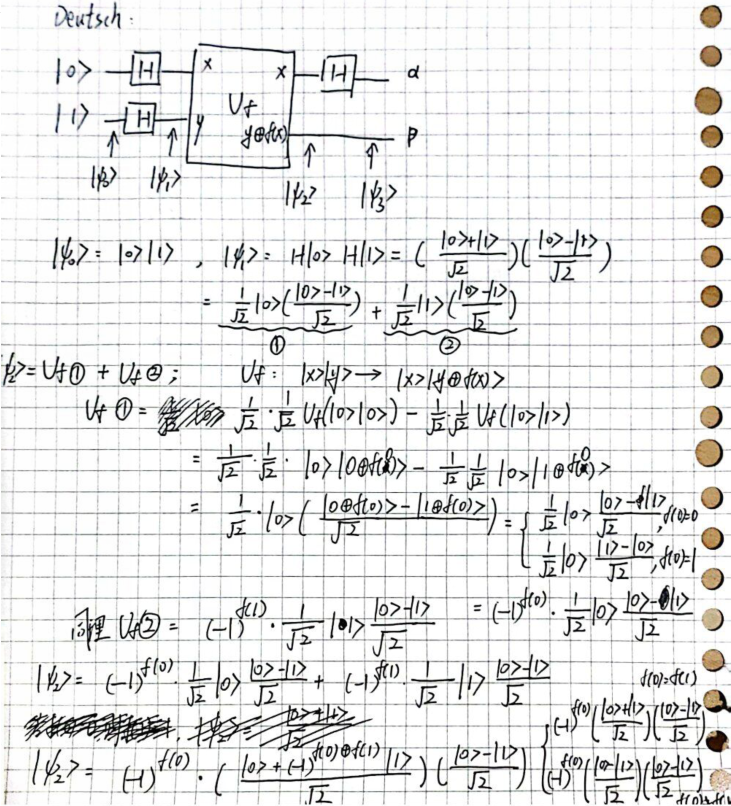 Deutsch:
|0> H x x H α
|1> H y U_f y⊕f(x) β
|ψ₀> |ψ₁> |ψ₂> |ψ₃>
|ψ₀> = |0>|1> , |ψ₁> = H|0> H|1> = ( (|0>+|1>)/√2 )( (|0>-|1>)/√2 )
= 1/√2 |0>( (|0>-|1>)/√2 ) + 1/√2 |1>( (|0>-|1>)/√2 )
① ②
|ψ₂> = U_f① + U_f②; U_f: |x>|y> → |x>|y⊕f(x)>
U_f① = 1/√2 · 1/√2 U_f(|0>|0>) - 1/√2 · 1/√2 U_f(|0>|1>)
= 1/√2 · 1/√2 · |0>|0⊕f(0)> - 1/√2 1/√2 |0>|1⊕f(0)>
= 1/√2 · |0>( (|0⊕f(0)> - |1⊕f(0)>)/√2 ) = { 1/√2 |0> (|0>-|1>)/√2, f(0)=0
1/√2 |0> (|1>-|0>)/√2, f(0)=1
= (-1)^f(0) · 1/√2 |0> (|0>-|1>)/√2
同理 U_f② = (-1)^f(1) · 1/√2 |1> (|0>-|1>)/√2
|ψ₂> = (-1)^f(0) · 1/√2 |0> (|0>-|1>)/√2 + (-1)^f(1) · 1/√2 |1> (|0>-|1>)/√2
|ψ₂> = (-1)^f(0) · ( (|0> + (-1)^(f(0)⊕f(1)) |1>)/√2 ) ( (|0>-|1>)/√2 )
f(0)=f(1)
{ (-1)^f(0) ( (|0>+|1>)/√2 )( (|0>-|1>)/√2 )
(-1)^f(0) ( (|0>-|1>)/√2 )( (|0>-|1>)/√2 )